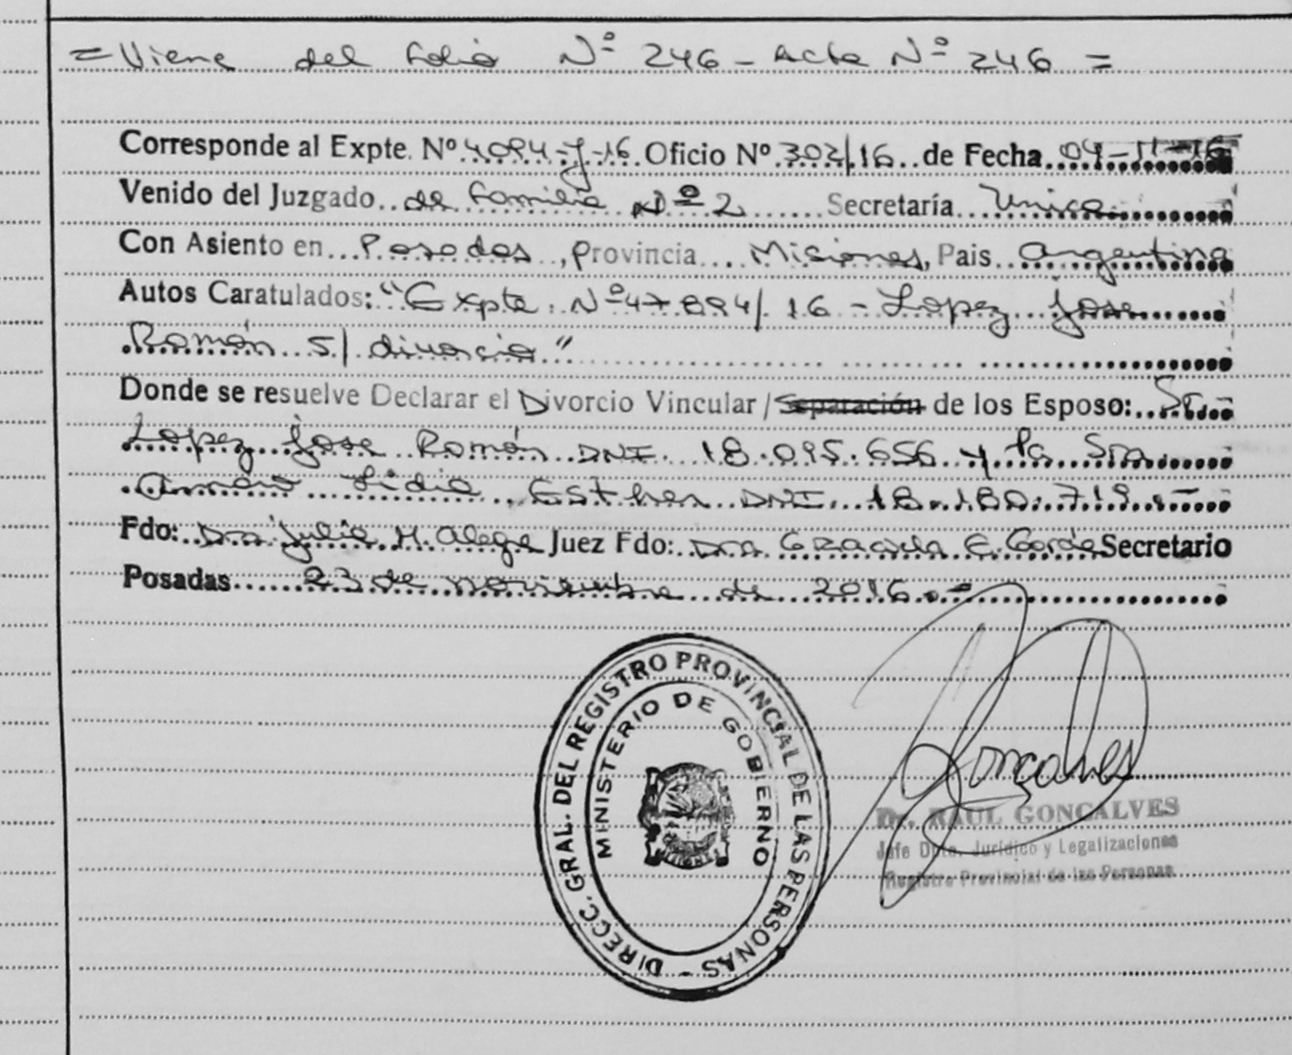 = Viene del folio Nº 246 - Acta Nº 246 =
Corresponde al Expte. Nº 4094-J-16 Oficio Nº 302/16 de Fecha 04-11-16
Venido del Juzgado de familia Nº 2 Secretaría Unica
Con Asiento en Posadas, Provincia Misiones, Pais Argentina
Autos Caratulados: "Expte. Nº 47894/16 - Lopez Jose
Román S/ divorcio"
Donde se resuelve Declarar el Divorcio Vincular / Separación de los Esposo: Sr.
Lopez Jose Román DNI 18.095.656 y la Sra
Lidia Esther DNI. 18.180.719.-
Fdo: Dra. Julia H. Alege Juez Fdo: Dra. Graciela E. Secretario
Posadas 23 de noviembre de 2016.-
DIRECC. GRAL. DEL REGISTRO PROVINCIAL DE LAS PERSONAS -
MINISTERIO DE GOBIERNO
Gonçalves
Dr. RAUL GONCALVES
Jefe Dpto. Jurídico y Legalizaciones
Registro Provincial de las Personas